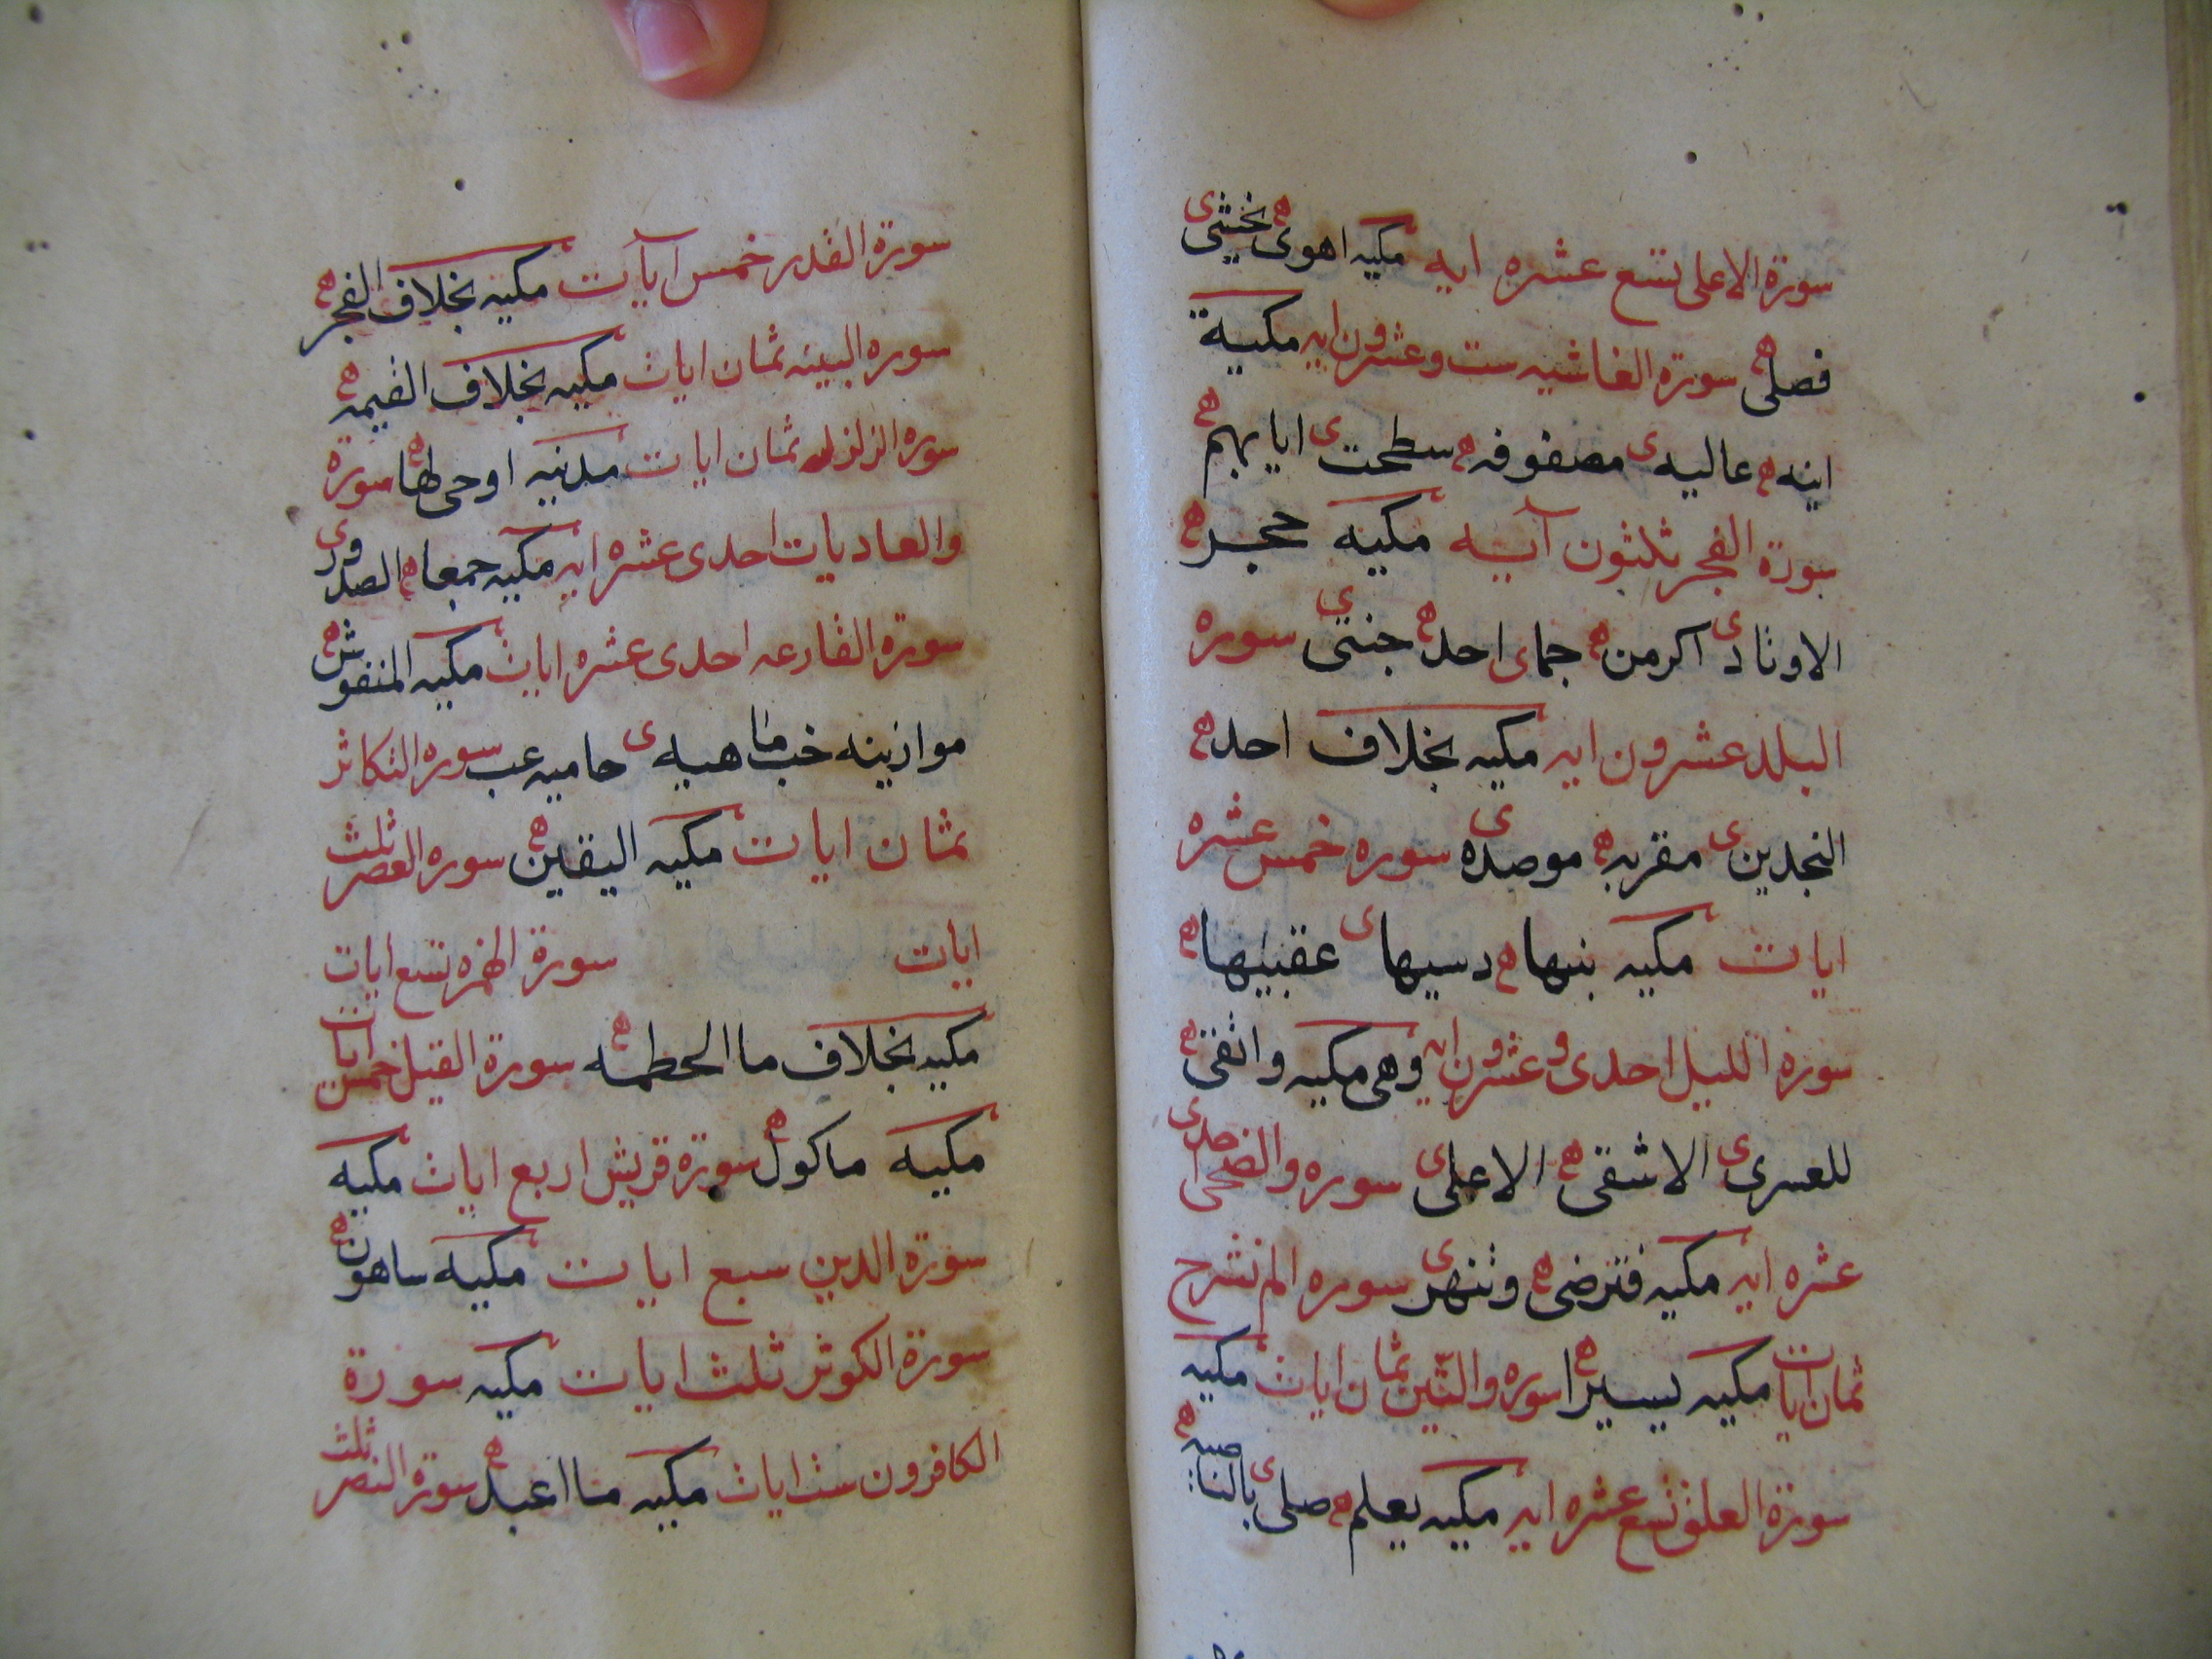 سورة الاعلى تسع عشره ايه مكيه اهوى ه يخشى ى
فصلى ه سورة الغاشيه ست وعشرون ايه مكية
انيه ه عاليه ى مصفوفه ه سطحت ى ايابهم ه
سورة الفجر ثلثون آيه مكيه حجر ه
الاوتاد ى اكرمن ه جما ى احد ه جنتى ى سوره
البلد عشرون ايه مكيه بخلاف احد ه
النجدين ى مقربه ه موصده ى سوره خمس عشره
ايات مكيه بنيها ه دسيها ى عقبيها ه
سورة الليل احدى وعشرون ايه وهى مكيه واتقى ه
للعسرى ى الاشقى ه الاعلى ى سوره والضحى احدى
عشره ايه مكيه فترضى ه وتنهر ى سوره الم نشرح
ثمان ايات مكيه يسيرا ه سوره والتين ثمان ايات مكيه
سورة العلق تسع عشره ايه مكيه يعلم ه صلى ى بالناصيه ه
سورة القدر خمس آيات مكيه بخلاف الفجر ه
سوره البينه ثمان ايات مكيه بخلاف القيمه ه
سوره الزلزله ثمان ايات مدنيه اوحى لها ه سورة
والعاديات احدى عشره ايه مكيه جمعا ه الصدور ى
سورة القارعه احدى عشره ايات مكيه المنفوش ه
موازينه خب ما هيه ى حاميه عب سوره التكاثر
ثمان ايات مكيه اليقين ه سوره العصر ثلث
ايات سورة الهمزه تسع ايات
مكيه بخلاف ما الحطمه ه سورة الفيل خمس ايات
مكيه ماكول ه سورة قريش اربع ايات مكيه
سورة الدين سبع ايات مكيه ساهون ه
سورة الكوثر ثلث ايات مكيه سورة
الكافرون ست ايات مكيه ما اعبد ه سورة النصر ثلث